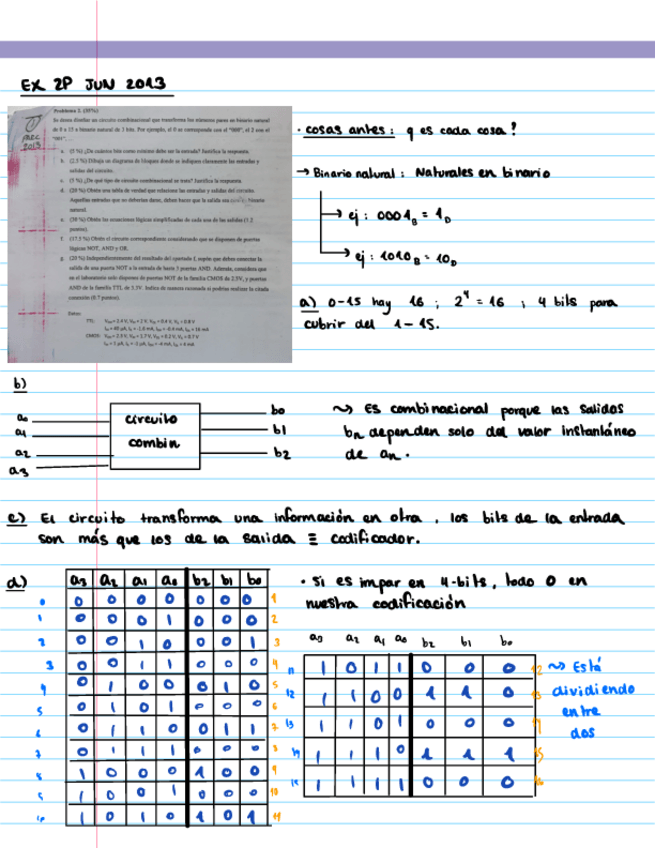 EX 2P JUN 2013
Problema 2. (35%)
Se desea diseñar un circuito combinacional que transforma los números pares en binario natural
de 0 a 15 a binario natural de 3 bits. Por ejemplo, el 0 se corresponde con el "000", el 2 con el
"001"...
a. (5 %) ¿De cuántos bits como mínimo debe ser la entrada? Justifica la respuesta.
b. (2.5 %) Dibuja un diagrama de bloques donde se indiquen claramente las entradas y
salidas del circuito.
c. (5 %) ¿De qué tipo de circuito combinacional se trata? Justifica la respuesta
d. (20 %) Obtén una tabla de verdad que relacione las entradas y salidas del circuito.
Aquellas entradas que no deberían darse, deben hacer que la salida sea binario
natural.
e. (30 %) Obtén las ecuaciones lógicas simplificadas de cada una de las salidas (1.2
puntos).
f. (17.5 %) Obtén el circuito correspondiente considerando que se disponen de puertas
lógicas NOT, AND y OR.
g. (20 %) Independientemente del resultado del apartado f, supón que debes conectar la
salida de una puerta NOT a la entrada de hasta 5 puertas AND. Además, considera que
en el laboratorio solo dispones de puertas NOT de la familia CMOS de 2.5V, y puertas
AND de la familia TTL de 5.5V. Indica de manera razonada si podrías realizar la citada
conexión (0.7 puntos).
Datos:
TTL:
CMOS:
· cosas antes: q es cada cosa?
→ Binario natural: Naturales en binario
→ ej: 0001B = 1D
→ ej: 1010B = 10D
a) 0-15 hay 16 ; 2^4 = 16 ; 4 bits para
cubrir del 1-15.
b)
a0 b0
a1 circuito b1
a2 combin b2
a3
~> Es combinacional porque las salidas
bn dependen solo del valor instantáneo
de an.
c) El circuito transforma una información en otra, los bits de la entrada
son más que los de la salida ≡ codificador.
d)
a3 a2 a1 a0 b2 b1 b0
0 0 0 0 0 0 0 0 1
1 0 0 0 1 0 0 0 2
2 0 0 1 0 0 0 1 3
3 0 0 1 1 0 0 0 4
4 0 1 0 0 0 1 0 5
5 0 1 0 1 0 0 0 6
6 0 1 1 0 0 1 1 7
7 0 1 1 1 0 0 0 8
8 1 0 0 0 1 0 0 9
9 1 0 0 1 0 0 0 10
10 1 0 1 0 1 0 1 11
· Si es impar en 4-bits, todo 0 en
nuestra codificación
a3 a2 a1 a0 b2 b1 b0
11 1 0 1 1 0 0 0 12
12 1 1 0 0 1 1 0 13
13 1 1 0 1 0 0 0 14
14 1 1 1 0 1 1 1 15
15 1 1 1 1 0 0 0 16
~> Está
dividiendo
entre
dos